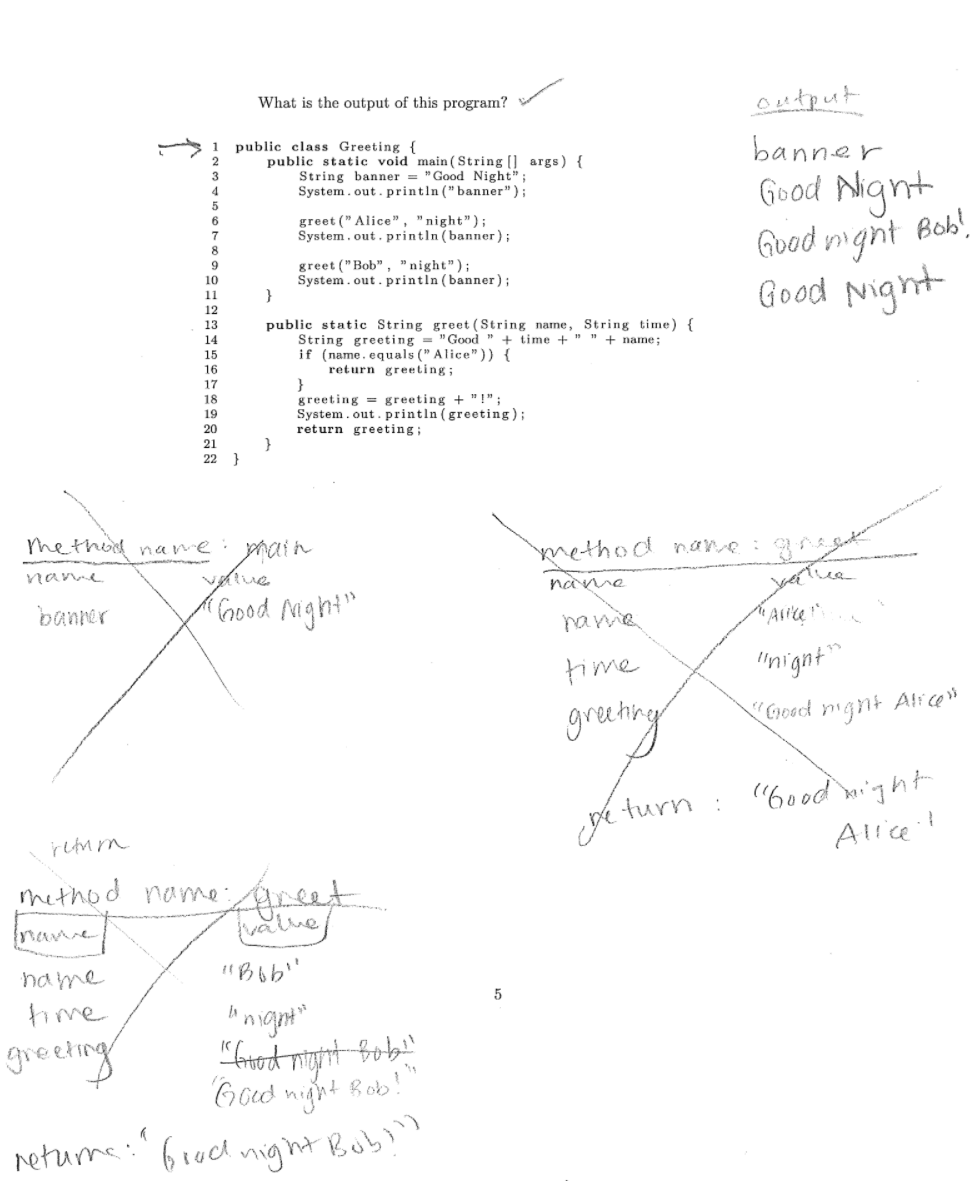 What is the output of this program?
output
banner
Good Night
Good night Bob!
Good Night
1 public class Greeting {
2 public static void main(String[] args) {
3 String banner = "Good Night";
4 System.out.println("banner");
5
6 greet("Alice", "night");
7 System.out.println(banner);
8
9 greet("Bob", "night");
10 System.out.println(banner);
11 }
12
13 public static String greet(String name, String time) {
14 String greeting = "Good " + time + " " + name;
15 if (name.equals("Alice")) {
16 return greeting;
17 }
18 greeting = greeting + "!";
19 System.out.println(greeting);
20 return greeting;
21 }
22 }
method name: main
name value
banner "Good Night"
method name: greet
name value
name "Alice"
time "night"
greeting "Good night Alice"
return: "Good night
Alice"
return
method name: greet
name value
name "Bob"
time "night"
greeting "Good night Bob"
"Good night Bob!"
returns: "Good night Bob!"
5